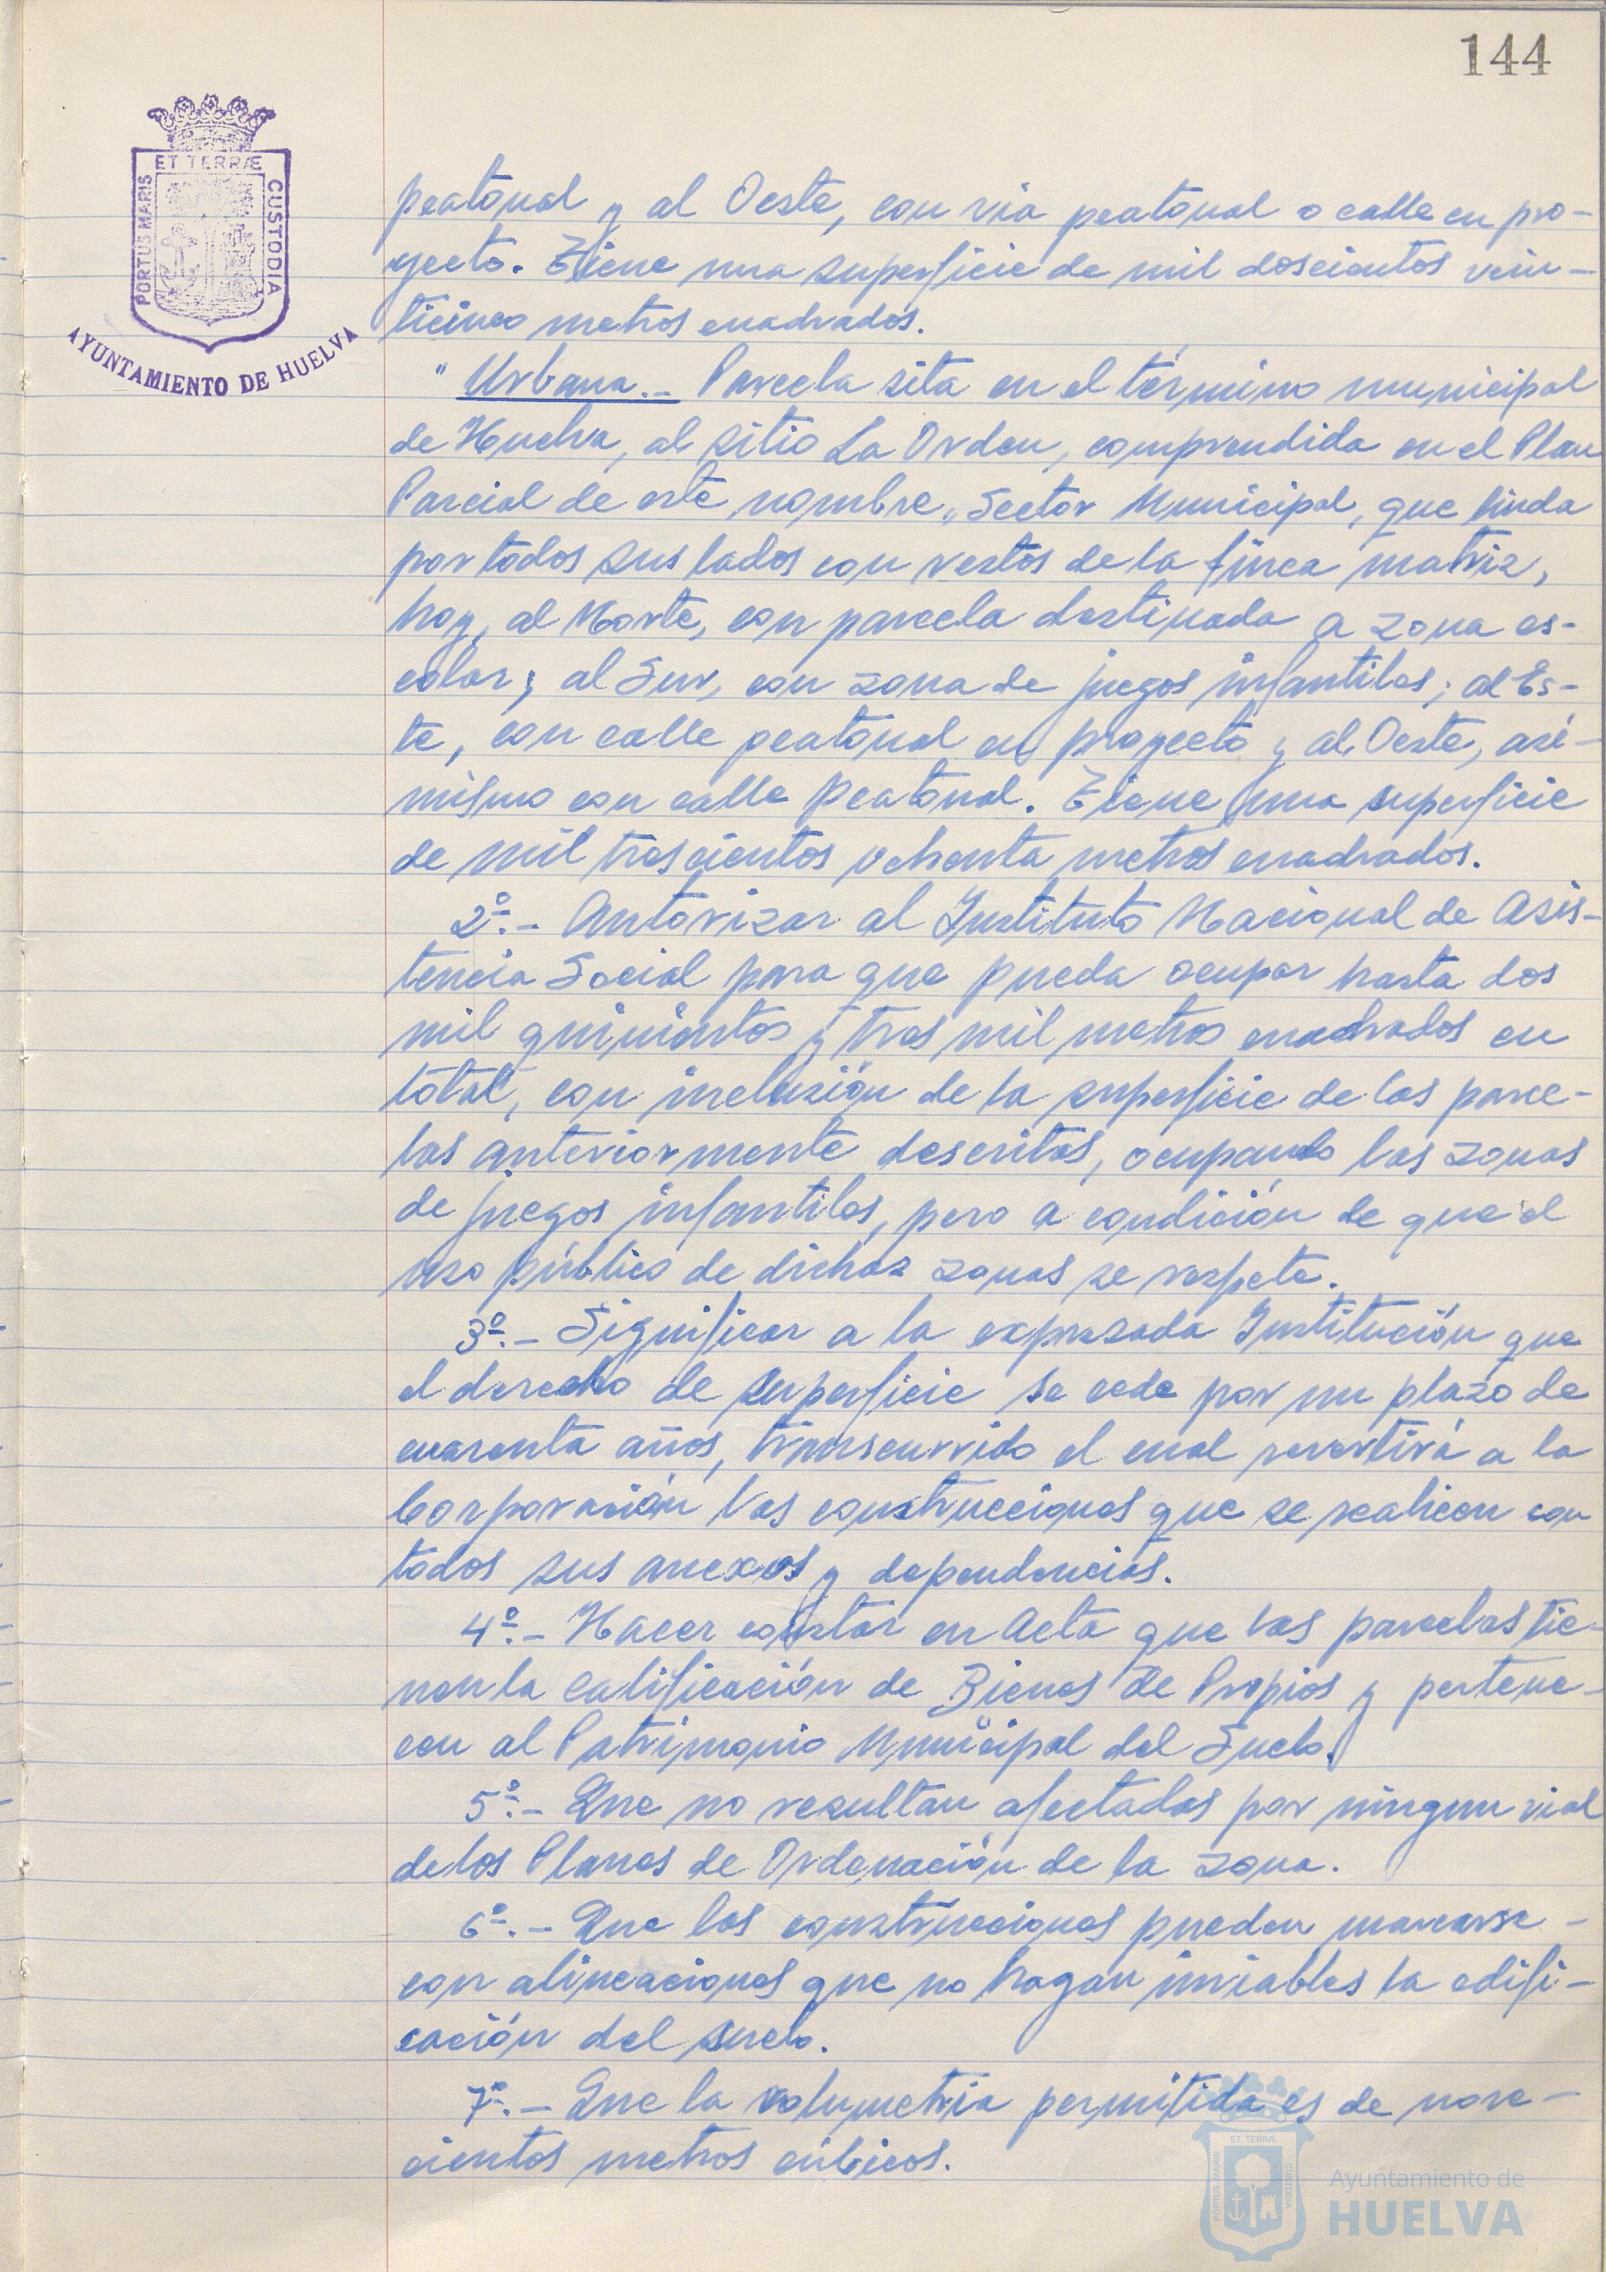 144
ET TERRÆ
PORTUS MARIS
CUSTODIA
AYUNTAMIENTO DE HUELVA
peatonal y al Oeste, con via peatonal o calle en pro-
yecto. Tiene una superficie de mil doscientos vein-
ticinco metros cuadrados.
" Urbana.- Parcela sita en el término municipal
de Huelva, al sitio La Orden, comprendida en el Plan
Parcial de este nombre, Sector Municipal, que linda
por todos sus lados con restos de la finca matriz,
hoy, al Norte, con parcela destinada a zona es-
colar; al Sur, con zona de juegos infantiles; al Es-
te, con calle peatonal en proyecto y al Oeste, asi-
mismo con calle peatonal. Tiene una superficie
de mil trescientos ochenta metros cuadrados.
2º.- Autorizar al Instituto Nacional de Asis-
tencia Social para que pueda ocupar hasta dos
mil quinientos y tres mil metros cuadrados en
total, con inclusión de la superficie de las parce-
las anteriormente descritas, ocupando las zonas
de juegos infantiles, pero a condición de que el
uso público de dichas zonas se respete.
3º.- Significar a la expresada Institución que
el derecho de superficie se cede por un plazo de
cuarenta años, transcurrido el cual revertirá a la
Corporación las construcciones que se realicen con
todos sus anexos y dependencias.
4º.- Hacer constar en Acta que las parcelas tie-
nen la calificación de Bienes de Propios y pertene-
cen al Patrimonio Municipal del Suelo.
5º.- Que no resultan afectadas por ningun vial
de los Planes de Ordenación de la zona.
6º.- Que las construcciones pueden marcarse -
con alineaciones que no hagan inviables la edifi-
cación del suelo.
7º.- Que la volumetria permitida es de nove-
cientos metros cúbicos.
ET TERRÆ
PORTUS MARIS
CUSTODIA
Ayuntamiento de
HUELVA